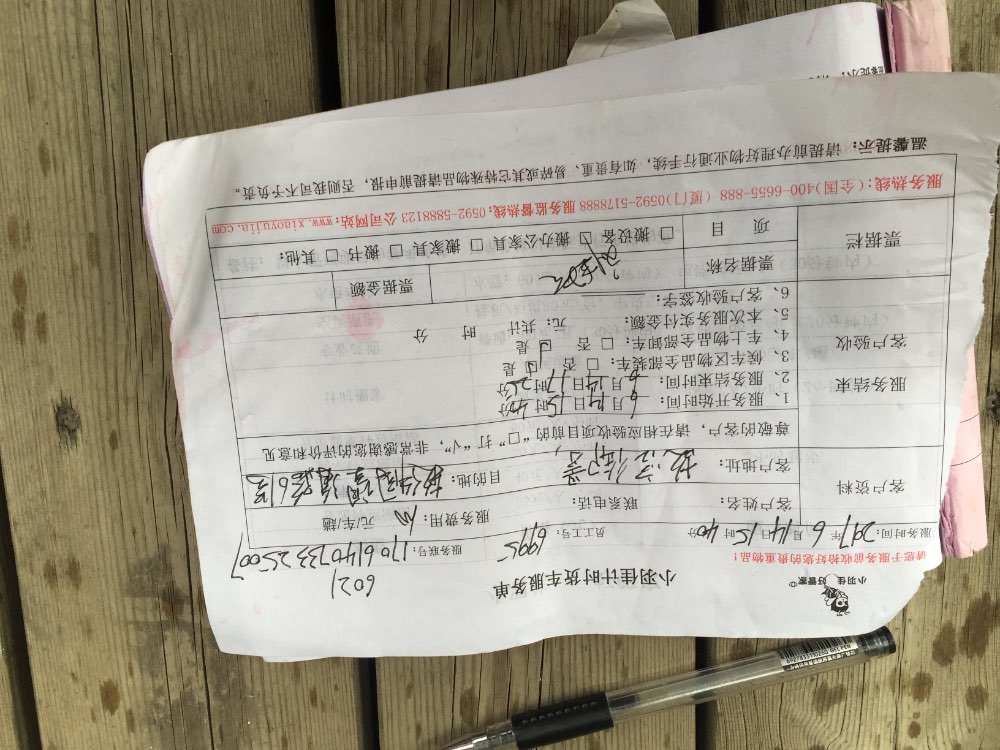 小羽佳 好管家
小羽佳计时货车服务单
6021
请您于服务前收拾好您的贵重物品！
服务时间：2017年 6 月 14 日 15 时 40 分 员工工号：6995 服务联号：
客户资料 客户姓名： 联系电话： 服务费用： 元/车/趟
客户地址： 目的地：
尊敬的客户，请在相应验收项目前的“□”打“√”，非常感谢您的评价和意见
服务结束
客户验收
1、服务开始时间： 6 月 14 日 15 时 40 分
2、服务结束时间： 6 月 14 日 17 时 26 分
3、候车区物品全部装车： □ 否 ☑ 是
4、车上物品全部卸车： □ 否 ☑ 是
5、本次服务实付金额： 元；共计 时 分
6、客户验收签字：
票据栏 票据名称 票据金额
项 目 □ 搬设备 □ 搬办公家具 □ 搬家具 □ 搬书 □ 其他：
服务热线：(全国)400-6655-888 (厦门)0592-5178888 服务监督热线：0592-5888123 公司网站：www.xiaoyujia.com
温馨提示：请提前办理好物业通行手续，如有贵重、易碎或其它特殊物品请提前申报，否则我司不予负责。